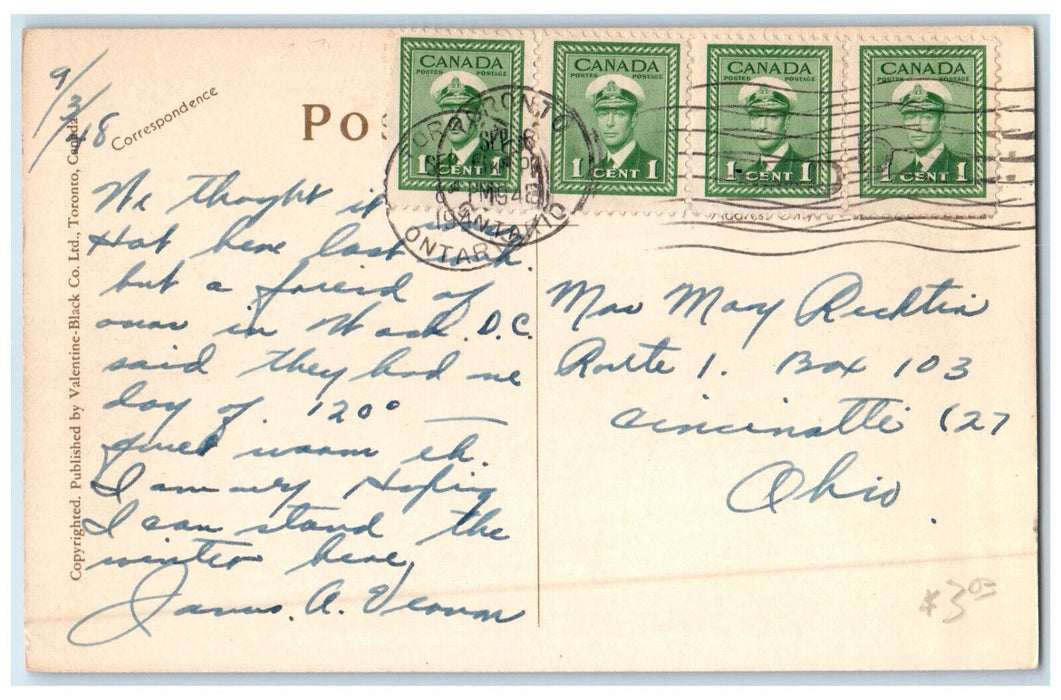 9/3/48
Correspondence
Pos
CANADA
POSTES POSTAGE
1 CENT 1
CANADA
POSTES POSTAGE
1 CENT 1
CANADA
POSTES POSTAGE
1 CENT 1
CANADA
POSTES POSTAGE
1 CENT 1
TORONTO
ONTARIO
Copyrighted. Published by Valentine-Black Co. Ltd., Toronto, Canada
We thought it
Hot here last
but a friend of
ours in Wash. D.C.
said they had one
day of 120°
quet warm eh.
I am only Hoping
I can stand the
winter here,
James. A.
Mrs May Recktin
Route 1. Box 103
Cincinatti (27
Ohio.
$3.00